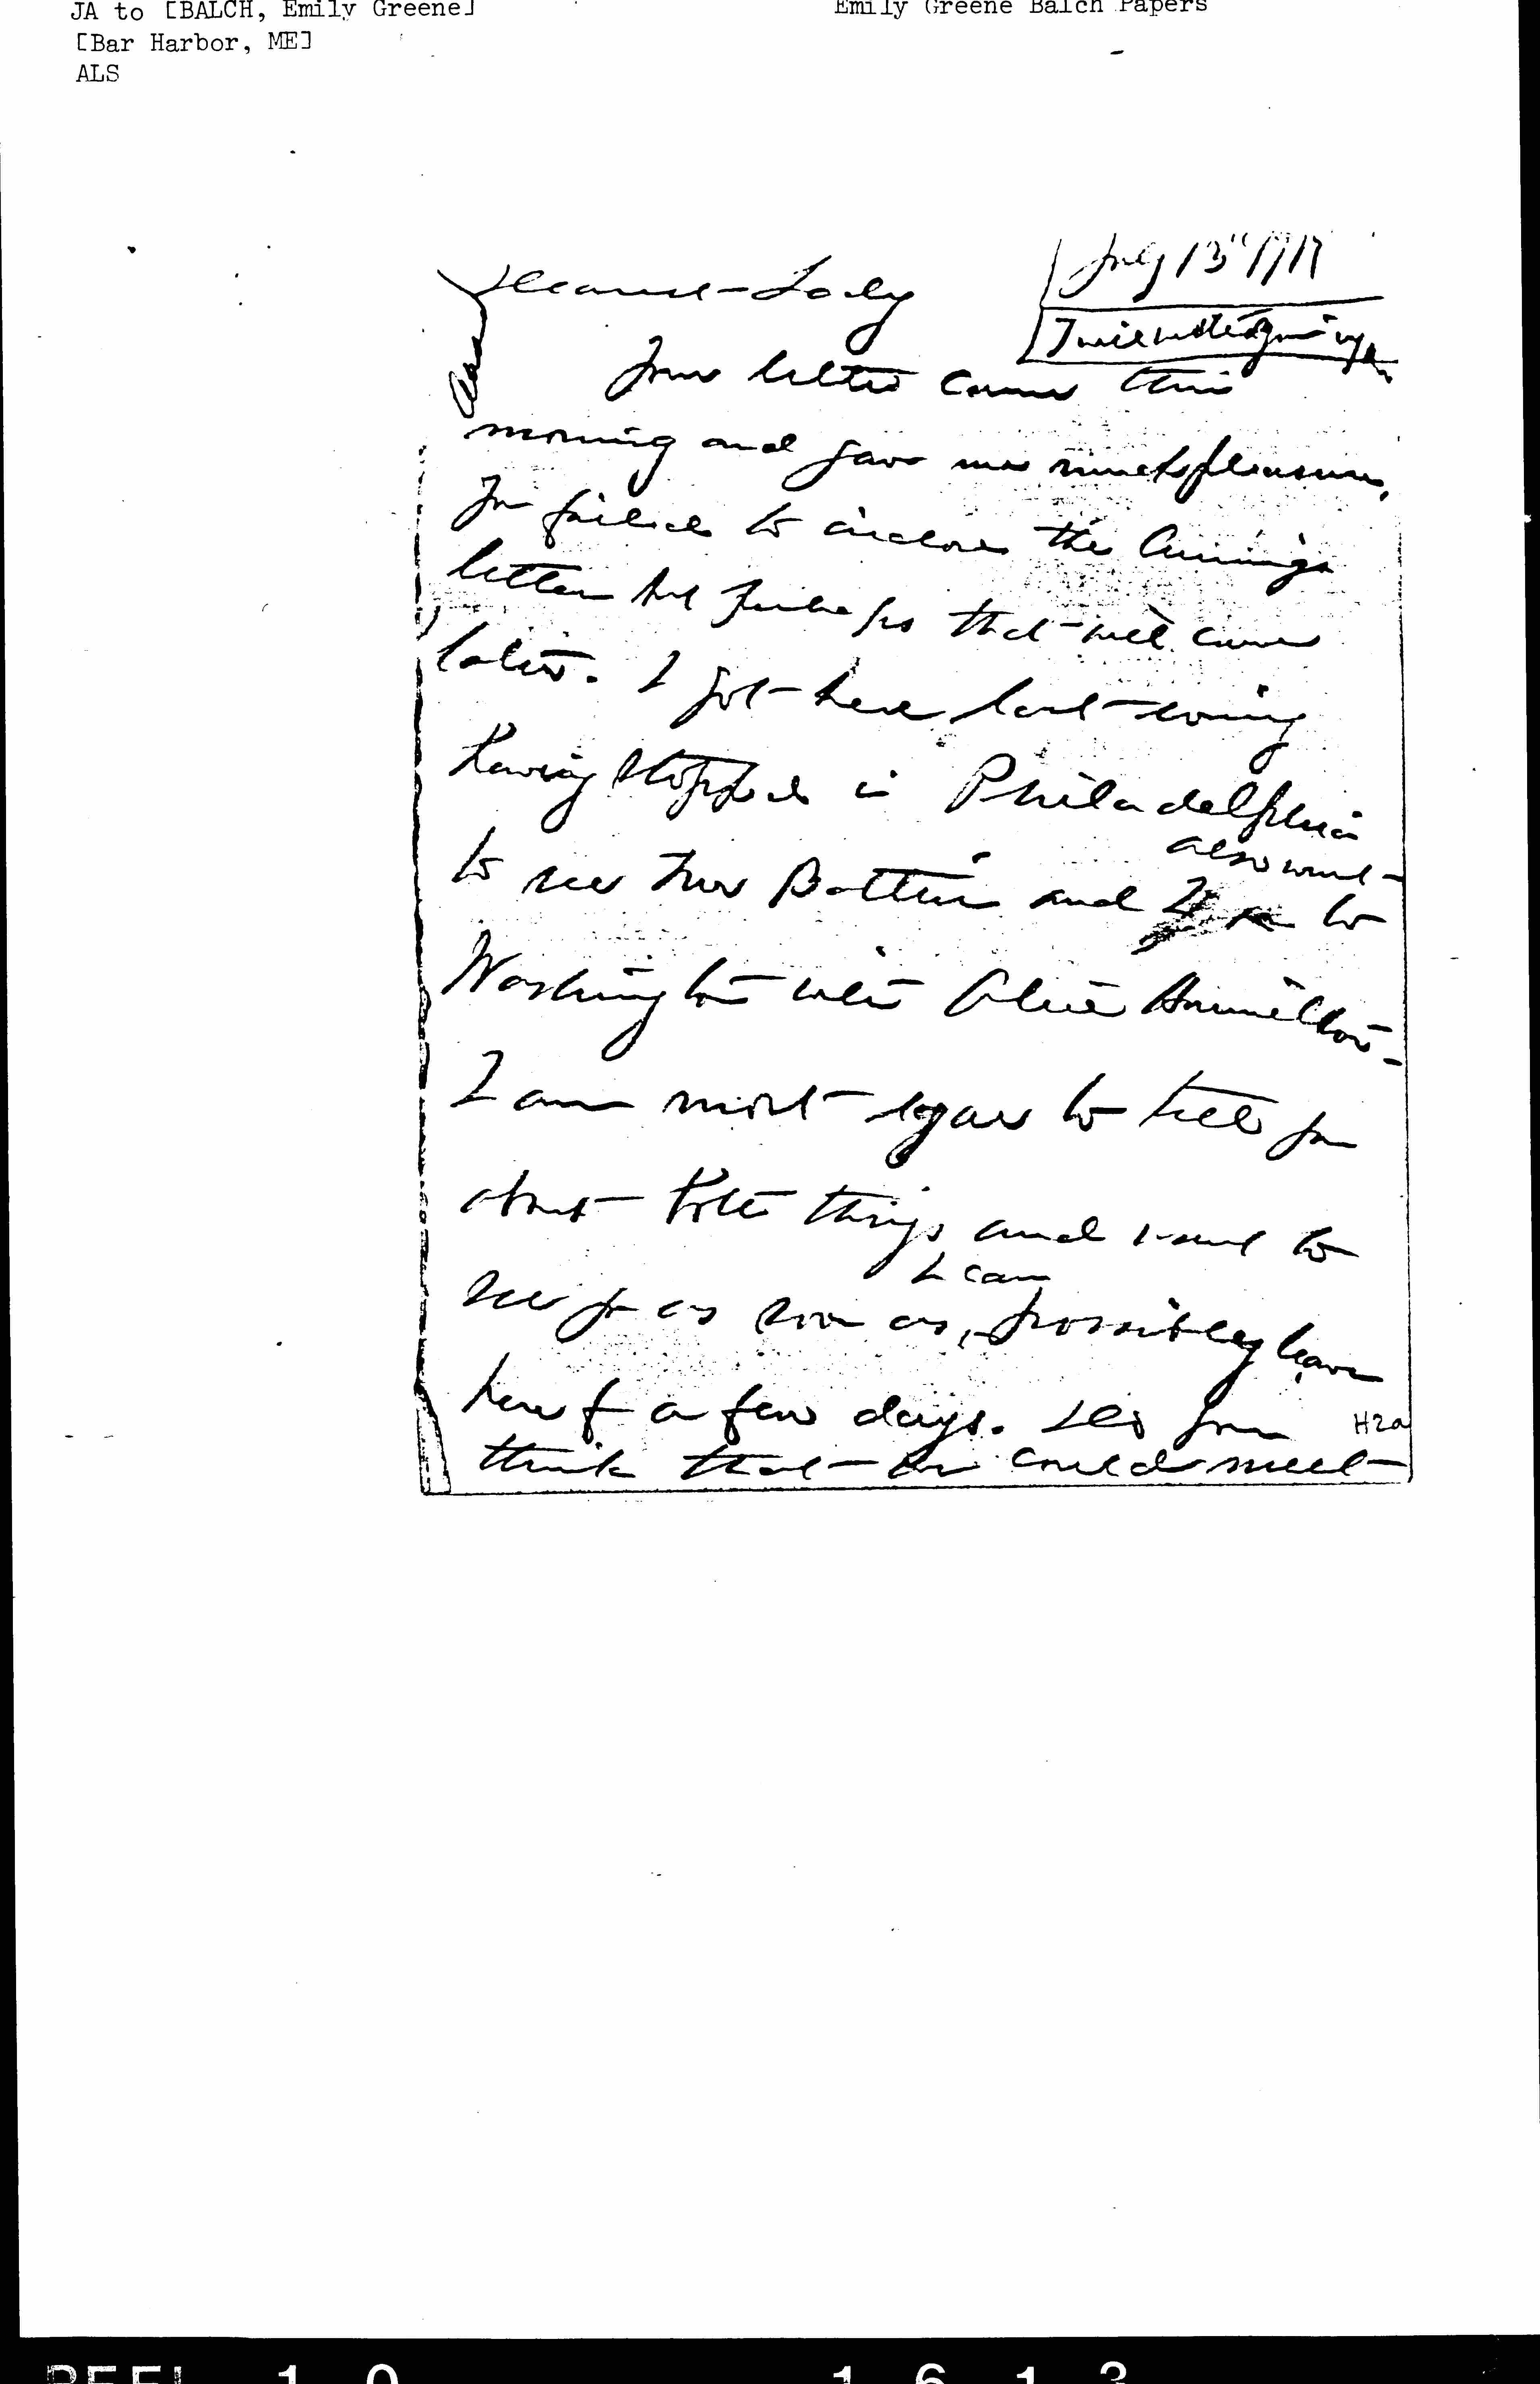 JA to [BALCH, Emily Greene]
Emily Greene Balch Papers
[Bar Harbor, ME]
ALS
July 13" 1917
Dearest Lady
I will write again
Your letter came this
morning and gave me much pleasure,
You failed to inclose the
letter but perhaps that will come
later. I got here last evening
having stopped in Philadelphia
to see Mrs and
also went
to
Washington with Alice Hamilton-
I am most eager to tell you
about both things and want to
I can
see you as soon as possibly leave
here for a few days. Do you
H2a
think that we could meet
REEL 10
1613